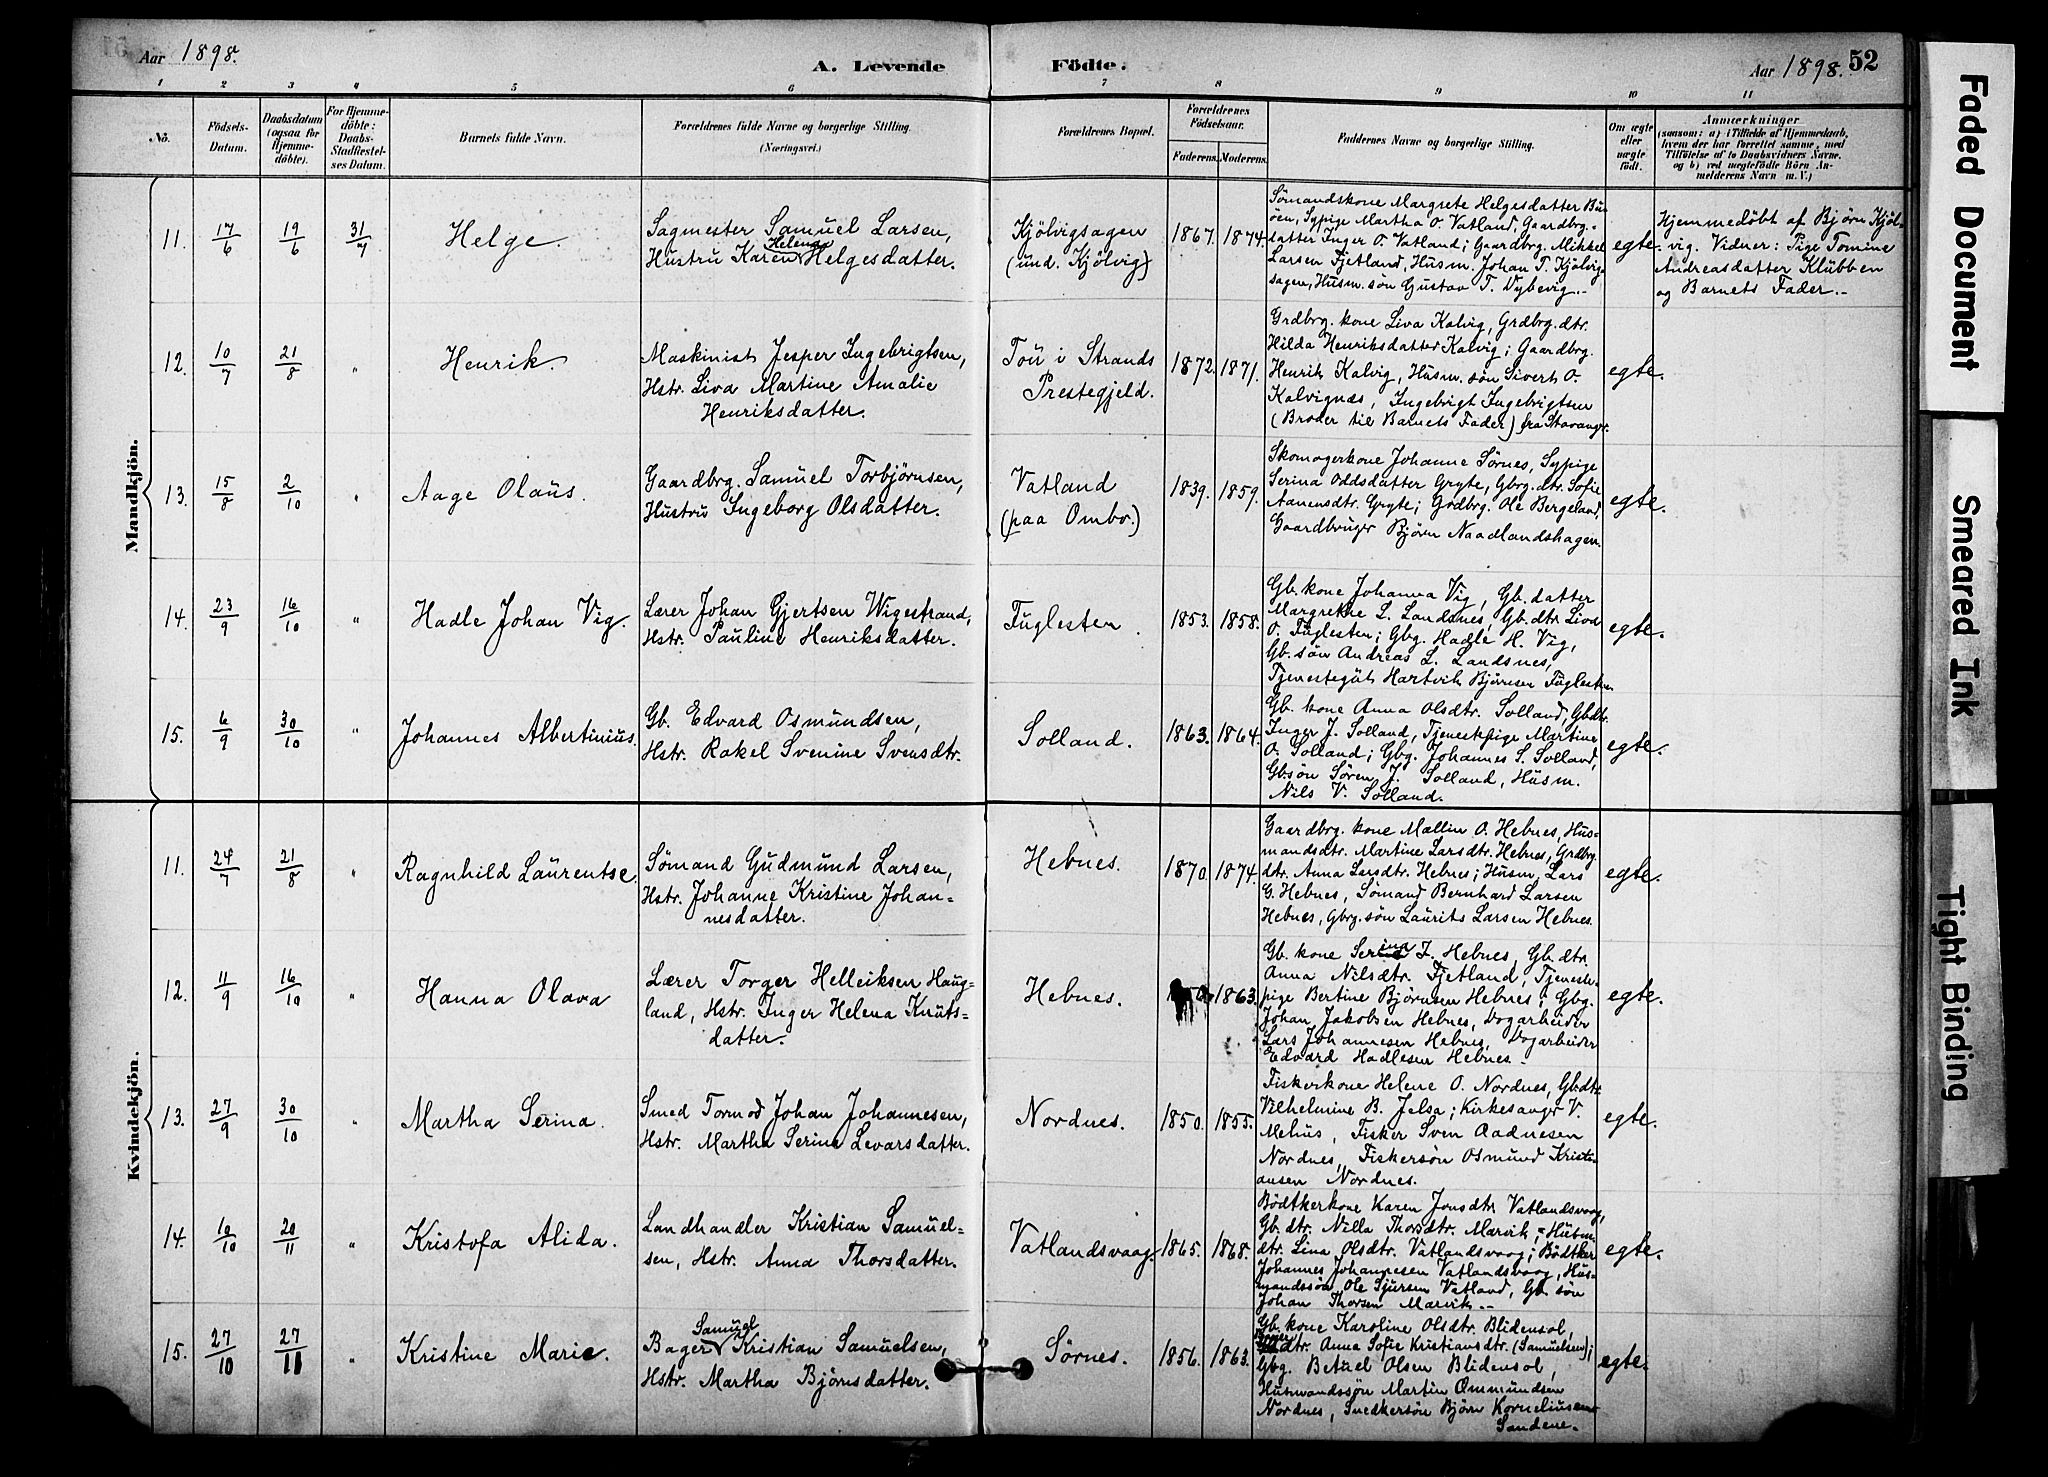 Aar 1898.
A. Levende
Födte.
Aar 1898.
52
1 2 3 4 5 6 7 8 9 10 11
No.
Födsels-
Datum.
Daabsdatum
(ogsaa for
Hjemme-
döbte).
For Hjemme-
döbte:
Daabs-
Stadfæstel-
ses Datum.
Barnets fulde Navn.
Forældrenes fulde Navne og borgerlige Stilling.
(Næringsvei.)
Forældrenes Bopæl.
Forældrenes
Födselsaar.
Faderens.
Moderens.
Faddernes Navne og borgerlige Stilling.
Om ægte
eller
uægte
födt.
Anmærkninger
(saasom: a) i Tilfælde af Hjemmedaab,
hvem der har forrettet samme, med
Tilföielse af to Daabsvidners Navne.
og b) ved uægtefödte Börn An-
melderens Navn m. V.)
Mandkjön.
11.
17/6
19/6
31/7
Helge.
Sagmester Samuel Larsen,
Helena
Hustru Karen Helgesdatter.
Kjölvigsagen
(und. Kjölvig)
1867.
1874.
Sömandskone Margrete Helgesdatter Bu-
öen, Sypige Martha O. Vatland, Gaardbrg.-
datter Inger O. Vatland; Gaardbrg. Mikkel
Larsen Fjetland, Husm. Johan T. Kjölvig-
sagen, Husm. sön Gustav T. Nybevig.-
egte.
Hjemmedöbt af Björn Kjöl-
vig. Vidner: Pige Tomine
Andreasdatter Klübben
og Barnets Fader.-
12.
10/7
21/8
"
Henrik.
Maskinist Jesper Ingebrigtsen,
Hstr. Liva Martine Amalie
Henriksdatter.
Toü i Strands
Prestegjeld.
1872.
1871.
Grdbrg. kone Liva Kalvig, Grdbrg. dtr.
Hilda Henriksdatter Kalvig; Gaardbrg.
Henrik Kalvig, Husm. sön Sivert O.
Kalvignæs, Ingebrigt Ingebrigtsen
(Broder til Barnets Fader) fra Stavanger.
egte.
13.
15/8
2/10
"
Aage Olaüs.
Gaardbrg. Samüel Torbjörnsen,
Hustru Ingeborg Olsdatter.
Vatland
(paa Ombo.)
1839.
1859.
Skomagerkone Johanne Sörnes, Sypige
Serina Oddsdatter Gryte, Gbrg. dtr. Sofie
Aanensdtr. Gryte; Grdbrg. Ole Bergeland,
Gaardbruger Björn Naadlandshagen.
egte.
14.
23/9
16/10
"
Hadle Johan Vig.
Lærer Johan Gjertsen Wigestrand,
Hstr. Pauline Henriksdatter.
Füglesten.
1853.
1858.
Gb. kone Johanna Vig, Gb. datter
Margrethe L. Landsnes, Gb. dtr. Liva
O. Füglesten; Gbg. Hadle H. Vig,
Gb. sön Andreas L. Landsnes,
Tjenestegüt Hartvik Björnsen Füglesten
egte.
15.
6/9
30/10
"
Johannes Albertiniüs.
Gb. Edvard Osmündsen,
Hstr. Rakel Svenine Svensdtr.
Solland.
1863.
1864.
Gb. kone Anna Olsdtr. Solland, Gbdtr.
Inger J. Solland, Tjenestpige Martine
O. Solland; Gbg. Johannes S. Solland,
Gbsön Sören J. Solland, Hüsm.
Nils V. Solland.
egte.
Kvindekjön.
11.
24/7
21/8
"
Ragnhild Laürentse
Sömand Gudmünd Larsen,
Hstr. Johanne Kristine Johan=
nesdatter.
Hebnes.
1870.
1874.
Gaardbrg. kone Mallin O. Hebnes, Hus-
mandsdtr. Martine Larsdtr. Hebnes, Grdbrg.
dtr. Anna Larsdtr. Hebnes; Husm. Lars
G. Hebnes, Sömand Bernhard Larsen
Hebnes, Gbrg. sön Laürits Larsen Hebnes.
egte.
12.
11/9
16/10
"
Hanna Olava
Lærer Torger Helleiksen Haug-
land, Hstr. Inger Helena Knüts=
datter.
Hebnes.
1863.
Gb. kone Serina J. Hebnes, Gb. dtr.
Anna Nilsdtr. Fjetland, Tjeneste-
pige Bertine Björnsen Hebnes; Gbg.
Johan Jakobsen Hebnes, Dagarbeider
Lars Johannesen Hebnes, Dagarbeider
Edvard Hadlesen Hebnes.-
egte.
13.
27/9
30/10
"
Martha Serina.
Smed Tormod Johan Johannesen,
Hstr. Martha Serine Levarsdatter.
Nordnes.
1850.
1855.
Fiskerkone Helene O. Nordnes, Gb.dtr.
Vilhelmine B. Jelsa; Kirkesanger V.
Mehüs, Fisker Sven Aadnesen
Nordnes, Fiskersön Osmünd Kristi-
ansen Nordnes.
egte.
14.
10/10
20/11
"
Kristofa Alida.
Landhandler Kristian Samüel-
sen, Hstr. Anna Thorsdatter.
Vatlandsvaag.
1865.
1868.
Bödtkerkone Karen Jonsdtr Vatlandsvaag,
Gb. dtr. Nilla Thorsdtr. Marvik, Hüsm.
dtr. Lina Olsdtr. Vatlandsvaag; Bödtker
Johannes Johannesen Vatlandsvaag, Hüs-
mandssön Ole Sjursen Vatland, Gb. sön
Johan Thorsen Marvik.-
egte.
15.
27/10
27/11
"
Kristine Marie.
Samuel
Bager Kristian Samuelsen,
Hstr. Martha Björnsdatter.
Sörnes.
1856.
1863.
Gb. kone Karoline Olsdtr. Blidensol,
Bager
dtr. Anna Sofie Kristiansdtr. (Samuelsen);
Gbg. Betuel Olsen Blidensol,
Husmandssön Martin Ommundsen
Nordnes, Snedkersön Björn Korneliusen
Sandene.
egte.
Faded Document
Smeared Ink
Tight Binding